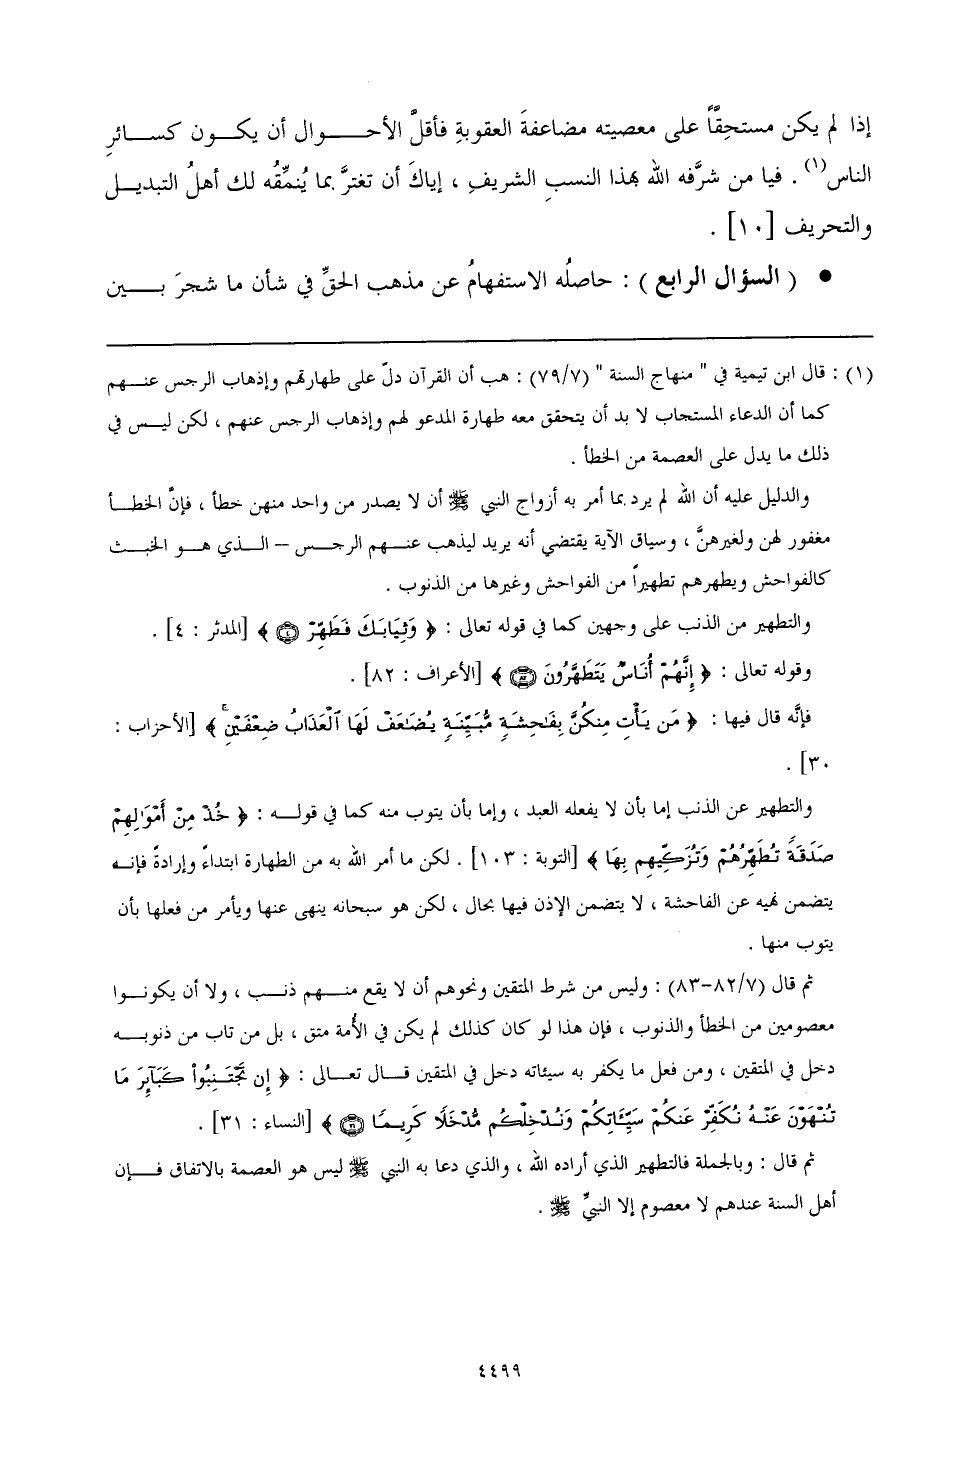 إذا لم يكن مستحِقَّاً على معصيته مضاعفةَ العقوبةِ فأقلَّ الأحـوال أن يكـون كسـائرِ
الناس(١) . فيا من شرَّفه الله بهذا النسبِ الشريفِ ، إياكَ أن تغترَّ بما يُنمِّقُه لك أهلُ التبديـل
والتحريف [١٠] .
● ( السؤال الرابع ) : حاصلُه الاستفهامُ عن مذهب الحقِّ في شأن ما شجرَ بـين
(١) : قال ابن تيمية في " منهاج السنة " (٧٩/٧) : هب أن القرآن دلّ على طهارتهم وإذهاب الرجس عنـهم
كما أن الدعاء المستجاب لا بد أن يتحقق معه طهارة المدعو لهم وإذهاب الرجس عنهم ، لكن ليـس في
ذلك ما يدل على العصمة من الخطأ .
والدليل عليه أن الله لم يرد بما أمر به أزواج النبي ﷺ أن لا يصدر من واحد منهن خطأ ، فإنَّ الخطـأ
مغفور لهن ولغيرهنَّ ، وسياق الآية يقتضي أنه يريد ليذهب عنـهم الرجـس – الـذي هـو الخبـث
كالفواحش ويطهرهم تطهيراً من الفواحش وغيرها من الذنوب .
والتطهير من الذنب على وجهين كما في قوله تعالى : ﴿ وَثِيَابَكَ فَطَهِّرْ ۝٤ ﴾ [المدثر : ٤] .
وقوله تعالى : ﴿ إِنَّهُمْ أُنَاسٌ يَتَطَهَّرُونَ ۝٨٢ ﴾ [الأعراف : ٨٢] .
فإنَّه قال فيها : ﴿ مَن يَأْتِ مِنكُنَّ بِفَـٰحِشَةٍ مُّبَيِّنَةٍ يُضَـٰعَفْ لَهَا ٱلْعَذَابُ ضِعْفَيْنِ ۚ ﴾ [الأحزاب :
٣٠] .
والتطهير عن الذنب إما بأن لا يفعله العبد ، وإما بأن يتوب منه كما في قولـه : ﴿ خُذْ مِنْ أَمْوَٰلِهِمْ
صَدَقَةً تُطَهِّرُهُمْ وَتُزَكِّيهِم بِهَا ﴾ [التوبة : ١٠٣] . لكن ما أمر الله به من الطهارة ابتداءً وإرادةً فإنـه
يتضمن نهيه عن الفاحشة ، لا يتضمن الإذن فيها بحال ، لكن هو سبحانه ينهى عنها ويأمر من فعلها بأن
يتوب منها .
ثم قال (٨٢/٧-٨٣) : وليس من شرط المتقين ونحوهم أن لا يقع منـهم ذنـب ، ولا أن يكونـوا
معصومين من الخطأ والذنوب ، فإن هذا لو كان كذلك لم يكن في الأُمة متق ، بل من تاب من ذنوبـه
دخل في المتقين ، ومن فعل ما يكفر به سيئاته دخل في المتقين قـال تعـالى : ﴿ إِن تَجْتَنِبُوا۟ كَبَآئِرَ مَا
تُنْهَوْنَ عَنْهُ نُكَفِّرْ عَنكُمْ سَيِّـَٔاتِكُمْ وَنُدْخِلْكُم مُّدْخَلًا كَرِيمًا ۝٣١ ﴾ [النساء : ٣١] .
ثم قال : وبالجملة فالتطهير الذي أراده الله ، والذي دعا به النبي ﷺ ليس هو العصمة بالاتفاق فـإن
أهل السنة عندهم لا معصوم إلا النبيِّ ﷺ .
٤٤٩٩